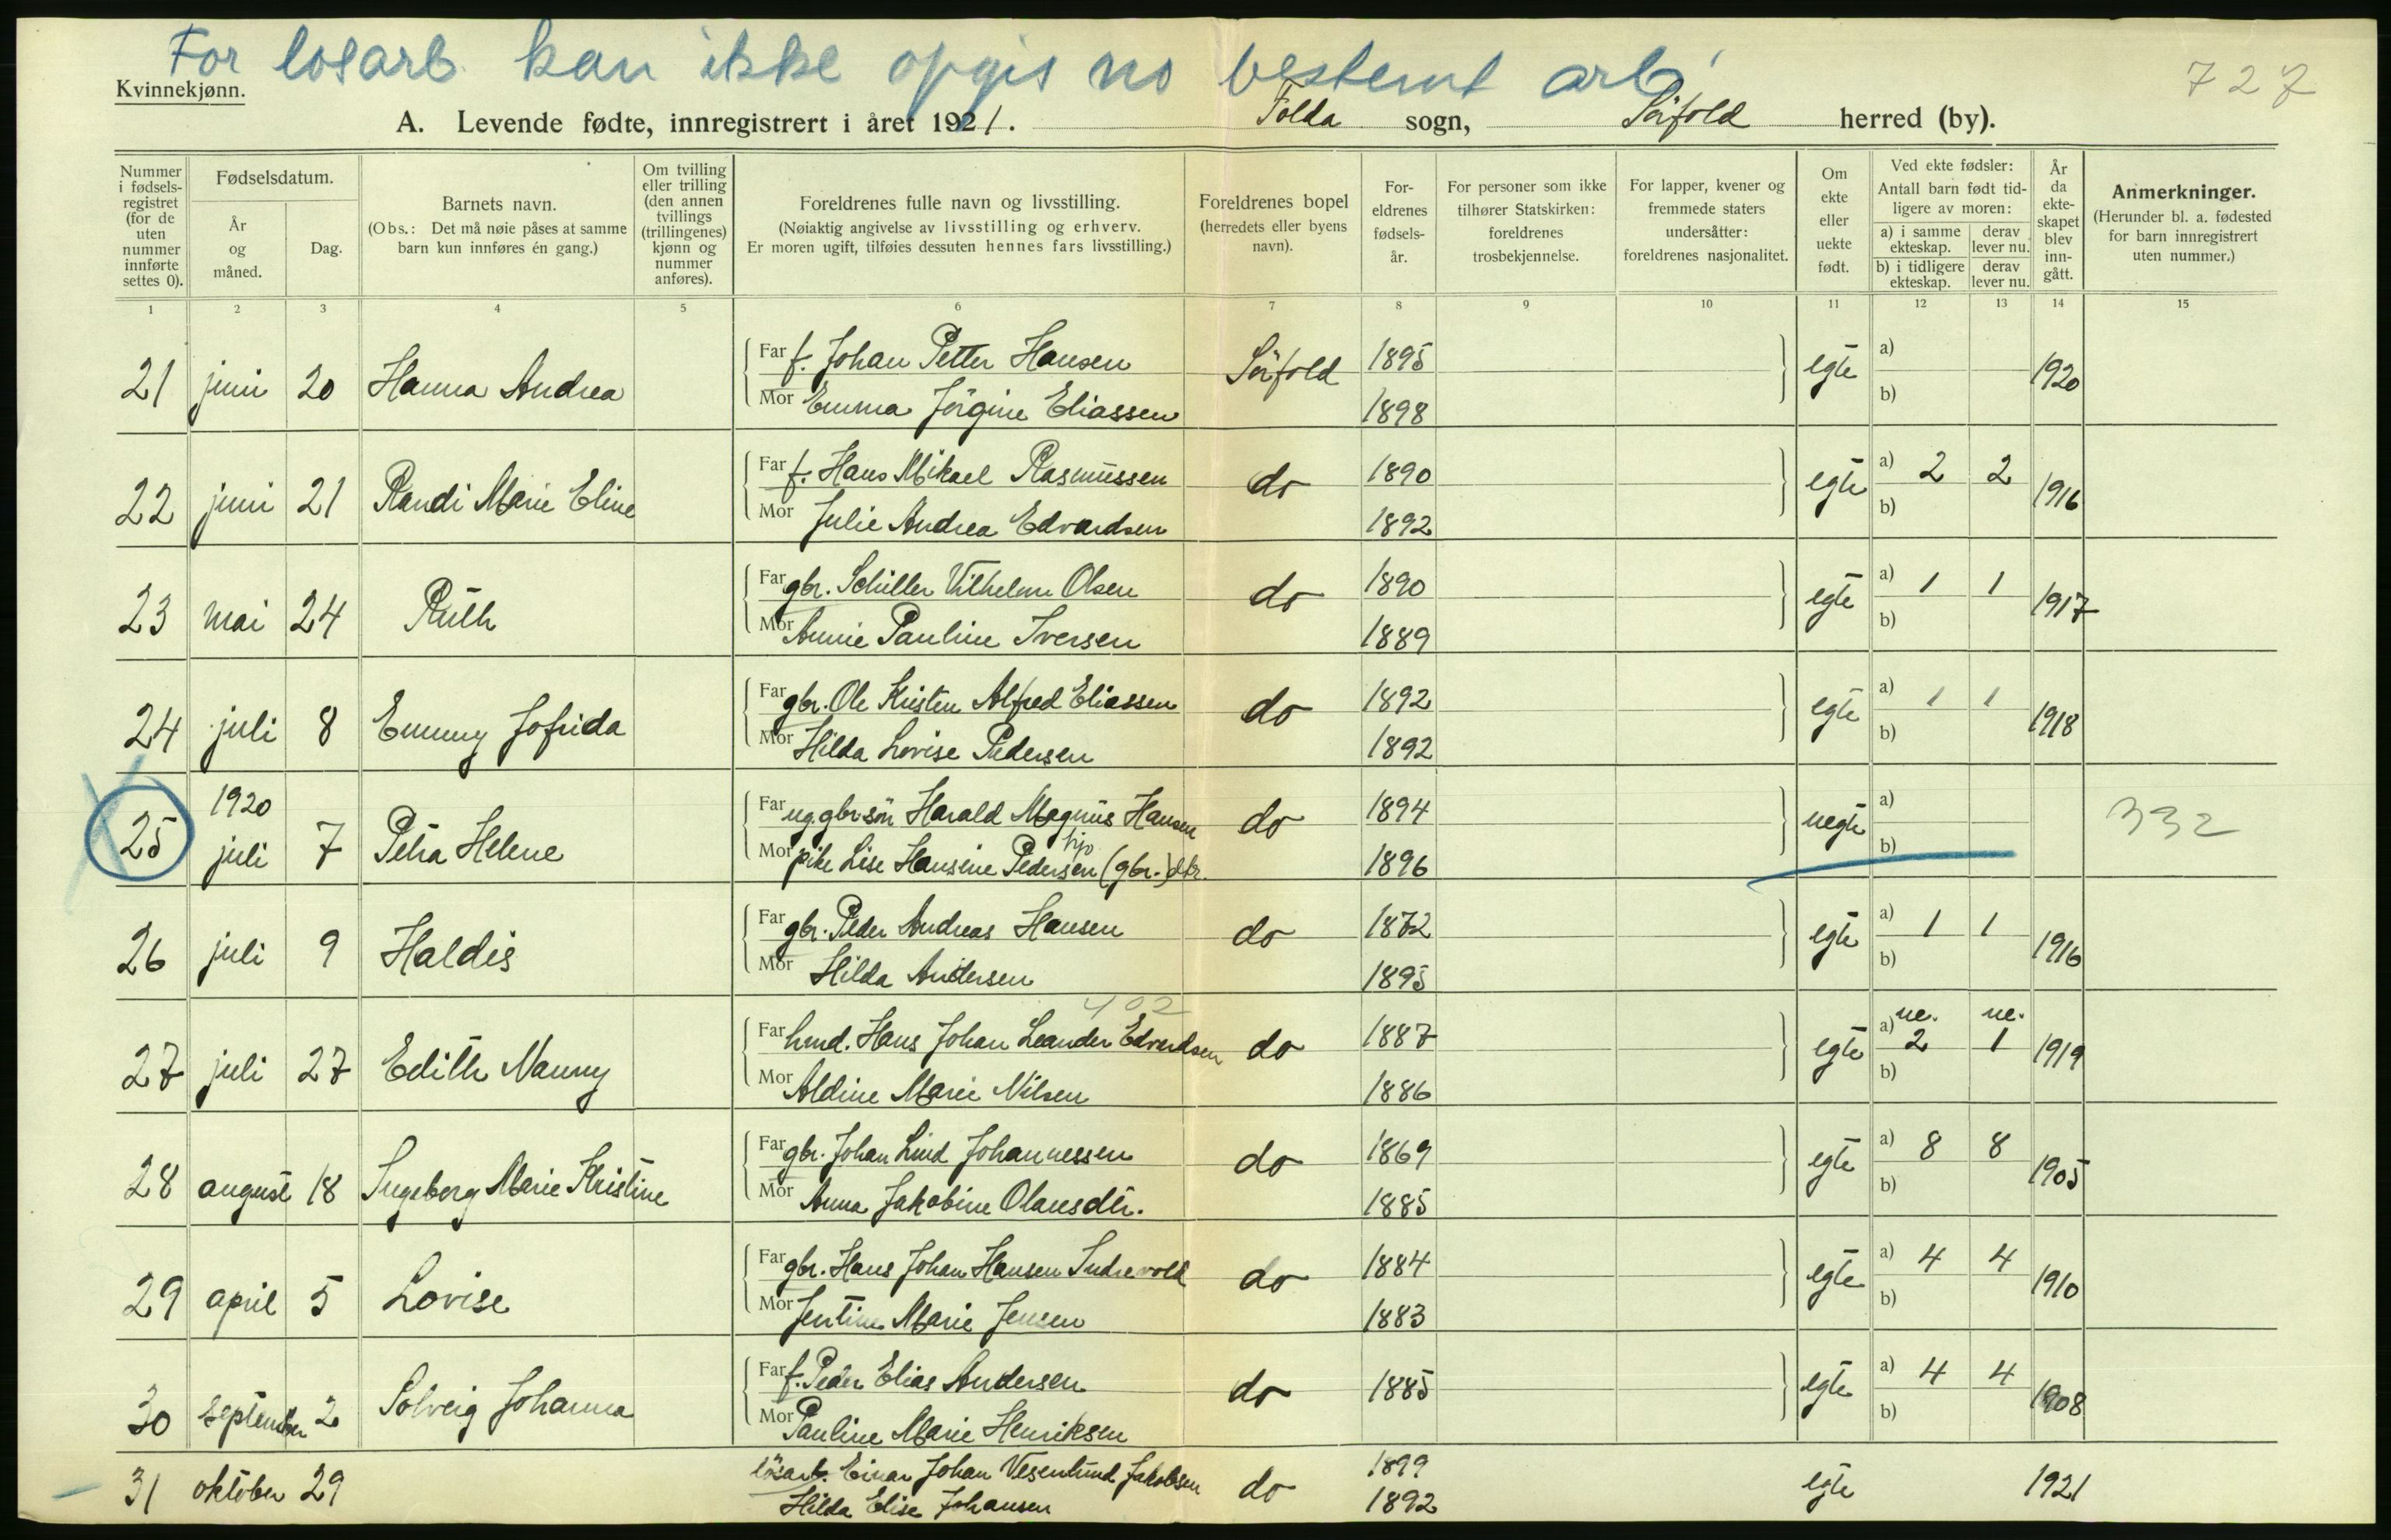 For losarb. kan ikke opgis no bestemt arb.
727
Kvinnekjønn.
A. Levende fødte, innregistrert i året 1921. Folda sogn, Sørfold herred (by).
Nummer i fødsels-registret (for de uten nummer innførte settes 0).
Fødselsdatum.
År og måned.
Dag.
Barnets navn.
(Obs.: Det må nøie påses at samme barn kun innføres én gang.)
Om tvilling eller trilling (den annen tvillings (trillingenes) kjønn og nummer anføres).
Foreldrenes fulle navn og livsstilling.
(Nøiaktig angivelse av livsstilling og erhverv.
Er moren ugift, tilføies dessuten hennes fars livsstilling.)
Foreldrenes bopel
(herredets eller byens navn).
For-eldrenes fødsels-år.
For personer som ikke tilhører Statskirken: foreldrenes trosbekjennelse.
For lapper, kvener og fremmede staters undersåtter: foreldrenes nasjonalitet.
Om ekte eller uekte født.
Ved ekte fødsler:
Antall barn født tid-ligere av moren:
a) i samme ekteskap. derav lever nu.
b) i tidligere ekteskap. derav lever nu.
År da ekte-skapet blev inn-gått.
Anmerkninger.
(Herunder bl. a. fødested for barn innregistrert uten nummer.)
1 2 3 4 5 6 7 8 9 10 11 12 13 14 15
21 juni 20 Hanna Andrea Far f. Johan Petter Hansen Sørfold 1895 egte a) 1920
Mor Emma Jørgine Eliassen 1898 b)
22 juni 21 Randi Marie Eline Far f. Hans Mikael Rasmussen do 1890 egte a) 2 2 1916
Mor Julie Andrea Edvardsen 1892 b)
23 mai 24 Ruth Far gbr. Schiller Vilhelm Olsen do 1890 egte a) 1 1 1917
Mor Annie Pauline Iversen 1889 b)
24 juli 8 Emmy Jofrida Far gbr. Ole Kristen Alfred Eliassen do 1892 egte a) 1 1 1918
Mor Hilda Lovise Pedersen 1892 b)
25 1920 juli 7 Petra Helene Far ug. gbr. søn Harald Magnus Hansen do 1894 uegte a) 332
Mor pike Lise Hansine Pedersen (gbr.) dtr. hjv 1896 b)
26 juli 9 Haldis Far gbr. Peder Andreas Hansen do 1872 egte a) 1 1 1916
Mor Hilda Andersen 1895 b)
402
27 juli 27 Edith Nanny Far hmd. Hans Johan Leander Edvardsen do 1887 egte a) ue. 2 ue. 1 1919
Mor Aldine Marie Nilsen 1886 b)
28 august 18 Ingeborg Marie Kristine Far gbr. Johan Lind Johannessen do 1869 egte a) 8 8 1905
Mor Anna Jakobine Olausdtr. 1885 b)
29 april 5 Lovise Far gbr. Hans Johan Hansen Indrevold do 1884 egte a) 4 4 1910
Mor Jentine Marie Jensen 1883 b)
30 september 2 Solveig Johanna Far f. Peder Elias Andersen do 1885 egte a) 4 4 1908
Mor Pauline Marie Henriksen b)
31 oktober 29 løsarb. Einar Johan Vesenlund Jakobsen do 1899 egte 1921
Hilda Elise Johansen 1892